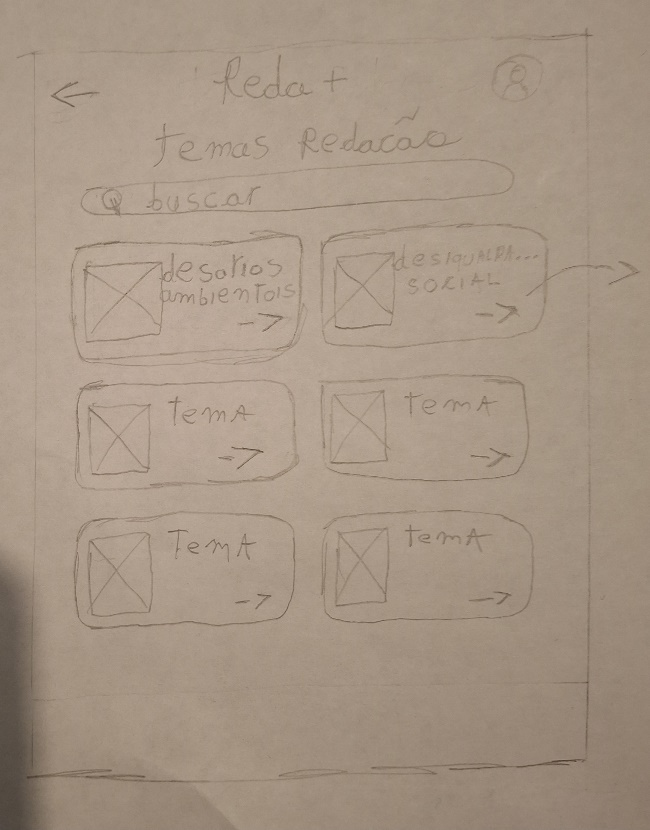 Reda +
temas Redacão
buscar
desafios
ambientais
desiguALDA...
SOCIAL
temA
temA
TemA
temA